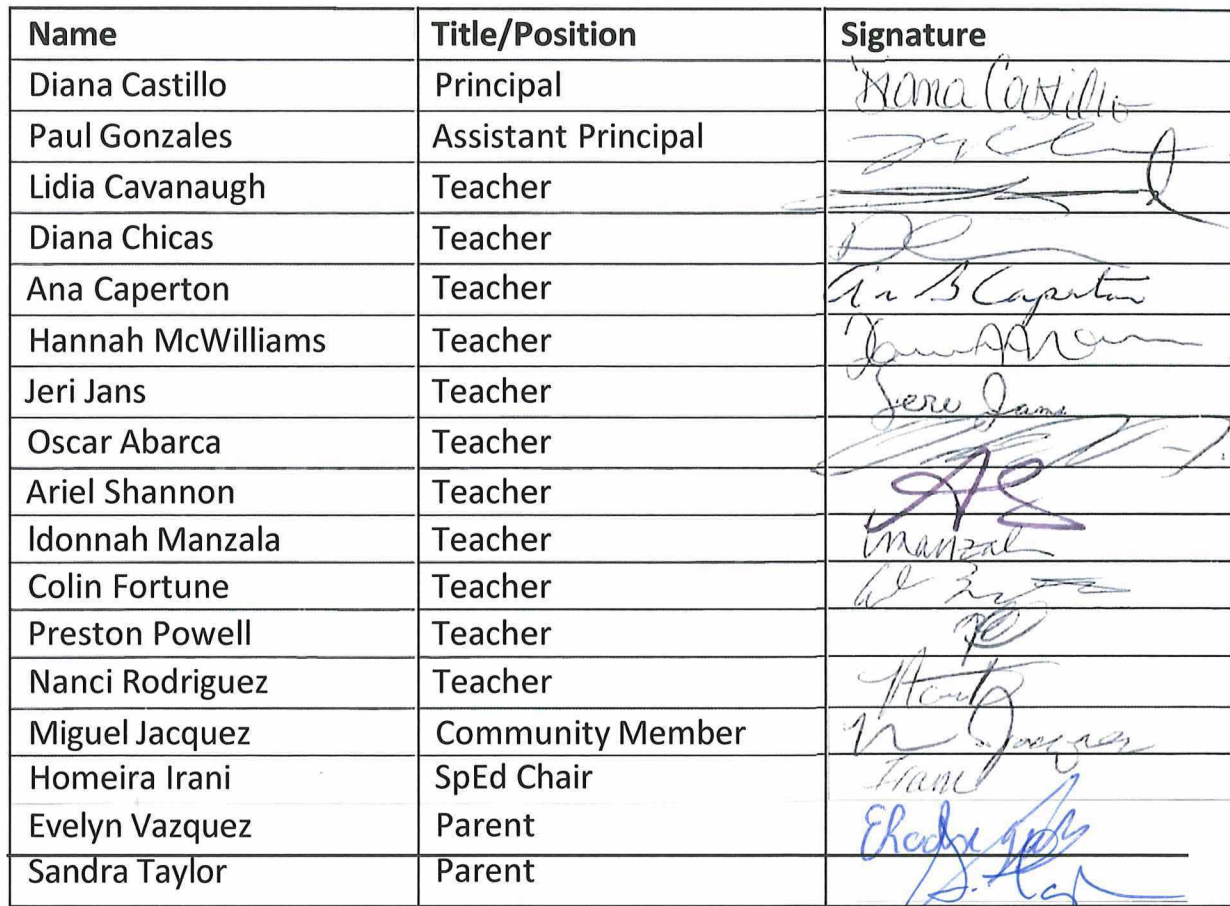 Name Title/Position Signature
Diana Castillo Principal Diana Castillo
Paul Gonzales Assistant Principal
Lidia Cavanaugh Teacher
Diana Chicas Teacher
Ana Caperton Teacher B Caperton
Hannah McWilliams Teacher
Jeri Jans Teacher Jeri Jans
Oscar Abarca Teacher
Ariel Shannon Teacher AS
Idonnah Manzala Teacher
Colin Fortune Teacher
Preston Powell Teacher
Nanci Rodriguez Teacher
Miguel Jacquez Community Member M Jacquez
Homeira Irani SpEd Chair Irani
Evelyn Vazquez Parent
Sandra Taylor Parent